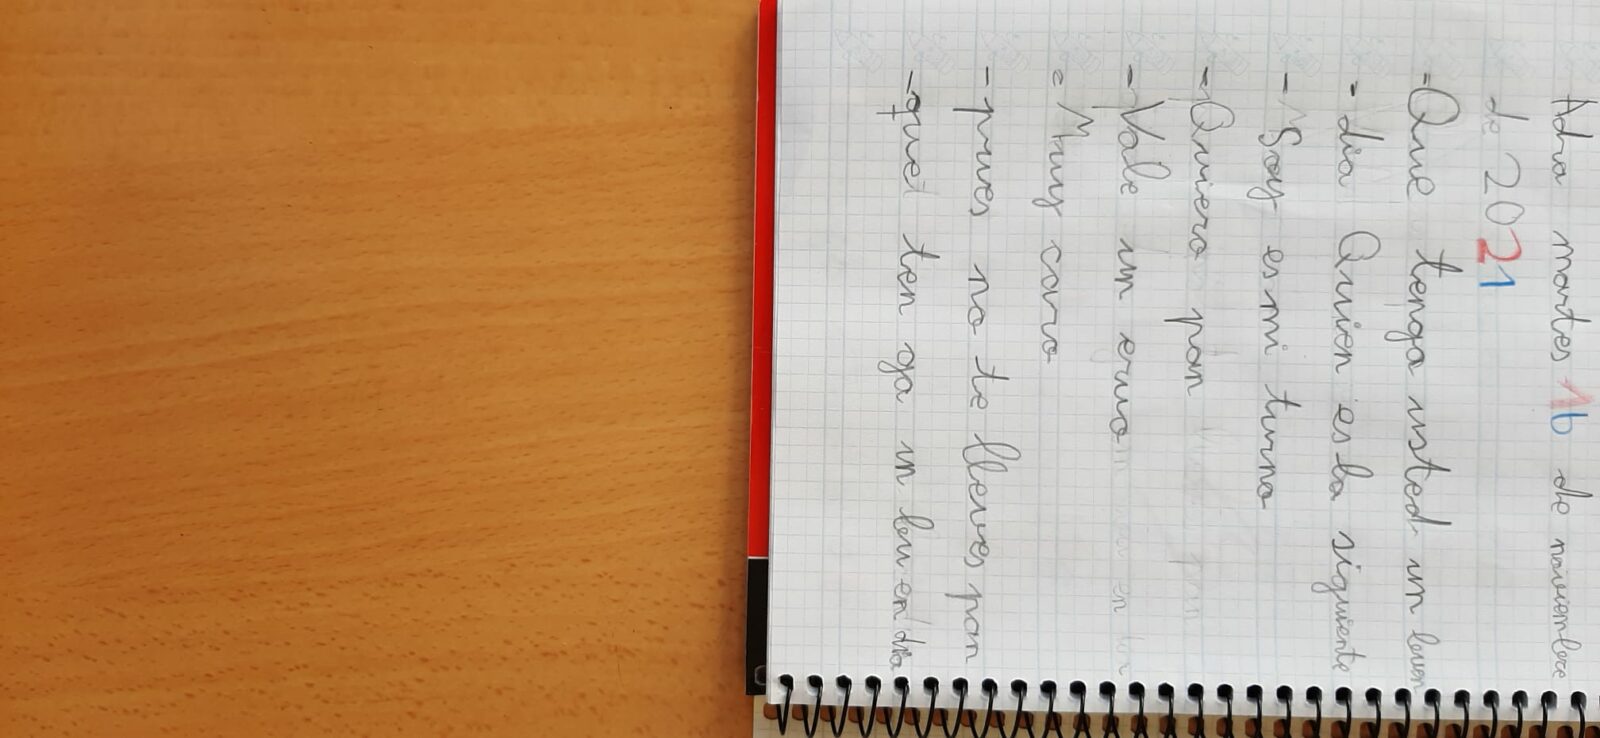 Adra martes 16 de noviembre
de 2021
- Que tenga usted un buen
- dia Quien es la siguiente
- Soy es mi turno
- Quiero pan
- Vale un eruo
- Muy caro
- pues no te lleves pan
- que ten ga un bu en dia